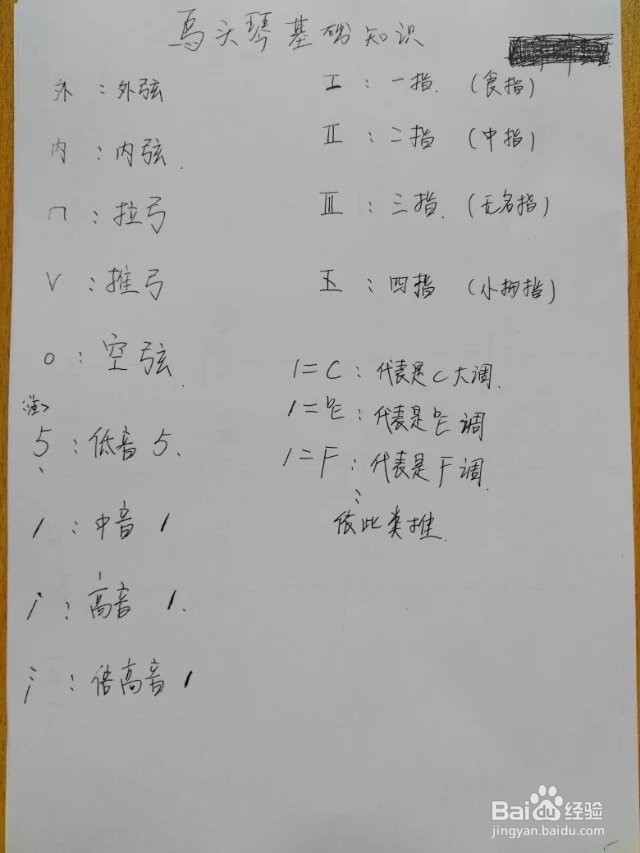 马头琴基础知识
外：外弦
内：内弦
⊓：拉弓
V：推弓
o：空弦
<注>
5̣：低音5.
1：中音1
i：高音1.
：倍高音1
I：一指.（食指）
II：二指（中指）
III：三指.（无名指）
：四指（小拇指）
1=C：代表是C大调.
1=bE：代表是bE调
1=F：代表是F调
依此类推.
Baidu经验
jingyan.baidu.com